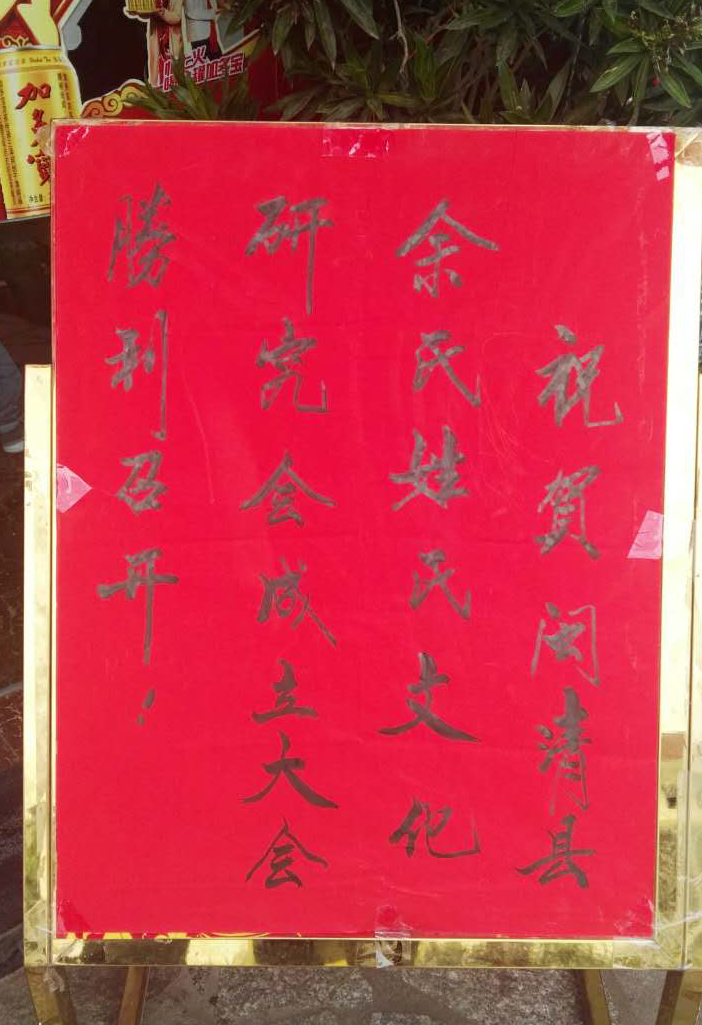 祝贺闽清县
余氏姓氏文化
研究会成立大会
勝利召开!
加多宝